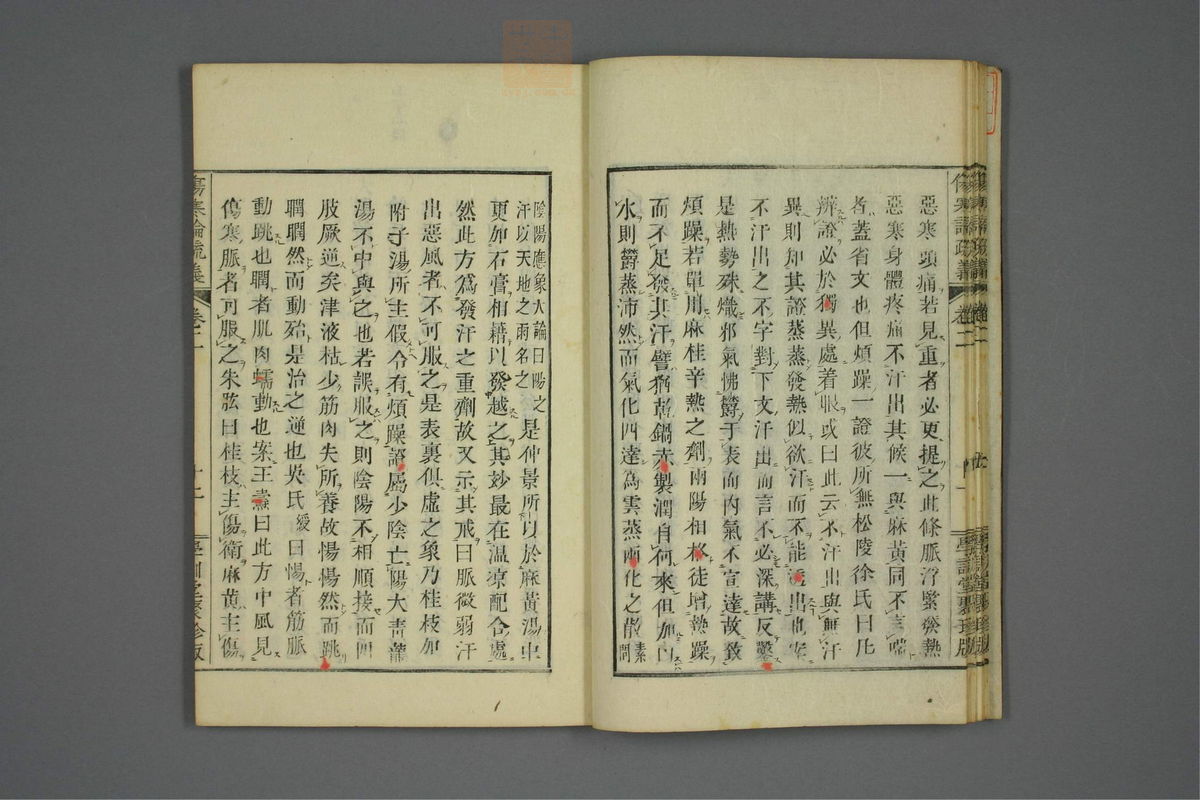 惡寒頭痛若見重者必更提之此條脈浮緊發熱
惡寒身體疼痛不汗出其候一與麻黃同不言喘
者蓋省文也但煩躁一證彼所無松陵徐氏曰凡
辨證必於獨異處着眼或曰此云不汗出與無汗
異則知其證蒸蒸發熱似欲汗而不能透出也案
不汗出之不字對下文汗出而言不必深講反鑿
是熱勢殊熾邪氣怫鬱于表而內氣不宣達故致
煩躁若單用麻桂辛熱之劑兩陽相格徒增熱躁
而不足發其汗譬猶乾鍋赤製潤自何來但加
水則鬱蒸沛然而氣化四達爲雲蒸雨化之散素問
陰陽應象大論曰陽之汗以天地之雨名之是仲景所以於麻黃湯中
更加石膏相藉以發越之其妙最在溫涼配合處
然此方爲發汗之重劑故又示其戒曰脈微弱汗
出惡風者不可服之是表裏俱虛之象乃桂枝加
附子湯所主假令有煩躁證屬少陰亡陽大青龍
湯不中與之也若誤服之則陰陽不相順接而四
肢厥逆矣津液枯少筋肉失所養故惕惕然而跳
瞤瞤然而動殆是治之逆也吳氏綬曰惕者筋脈
動跳也瞤者肌肉蠕動也案王燾曰此方中風見
傷寒脈者可服之朱肱曰桂枝主傷衛麻黃主傷
傷寒論疏義
卷二
十二
學訓堂聚珍版